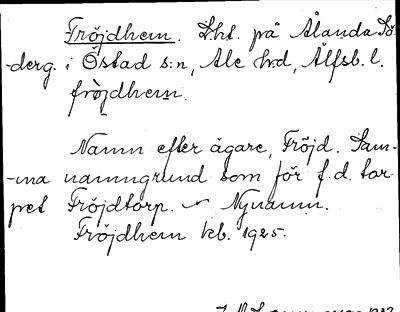 Fröjdhem. Lht. på Ålanda Sö-
-derg. i Östad s:n, Ale h:d, Älfsb. l.
fröjdhem.
Namn efter ägare, Fröjd. Sam-
-ma namngrund som för f.d. tor-
pet Fröjdtorp. Nynamn.
Fröjdhem kb. 1925.